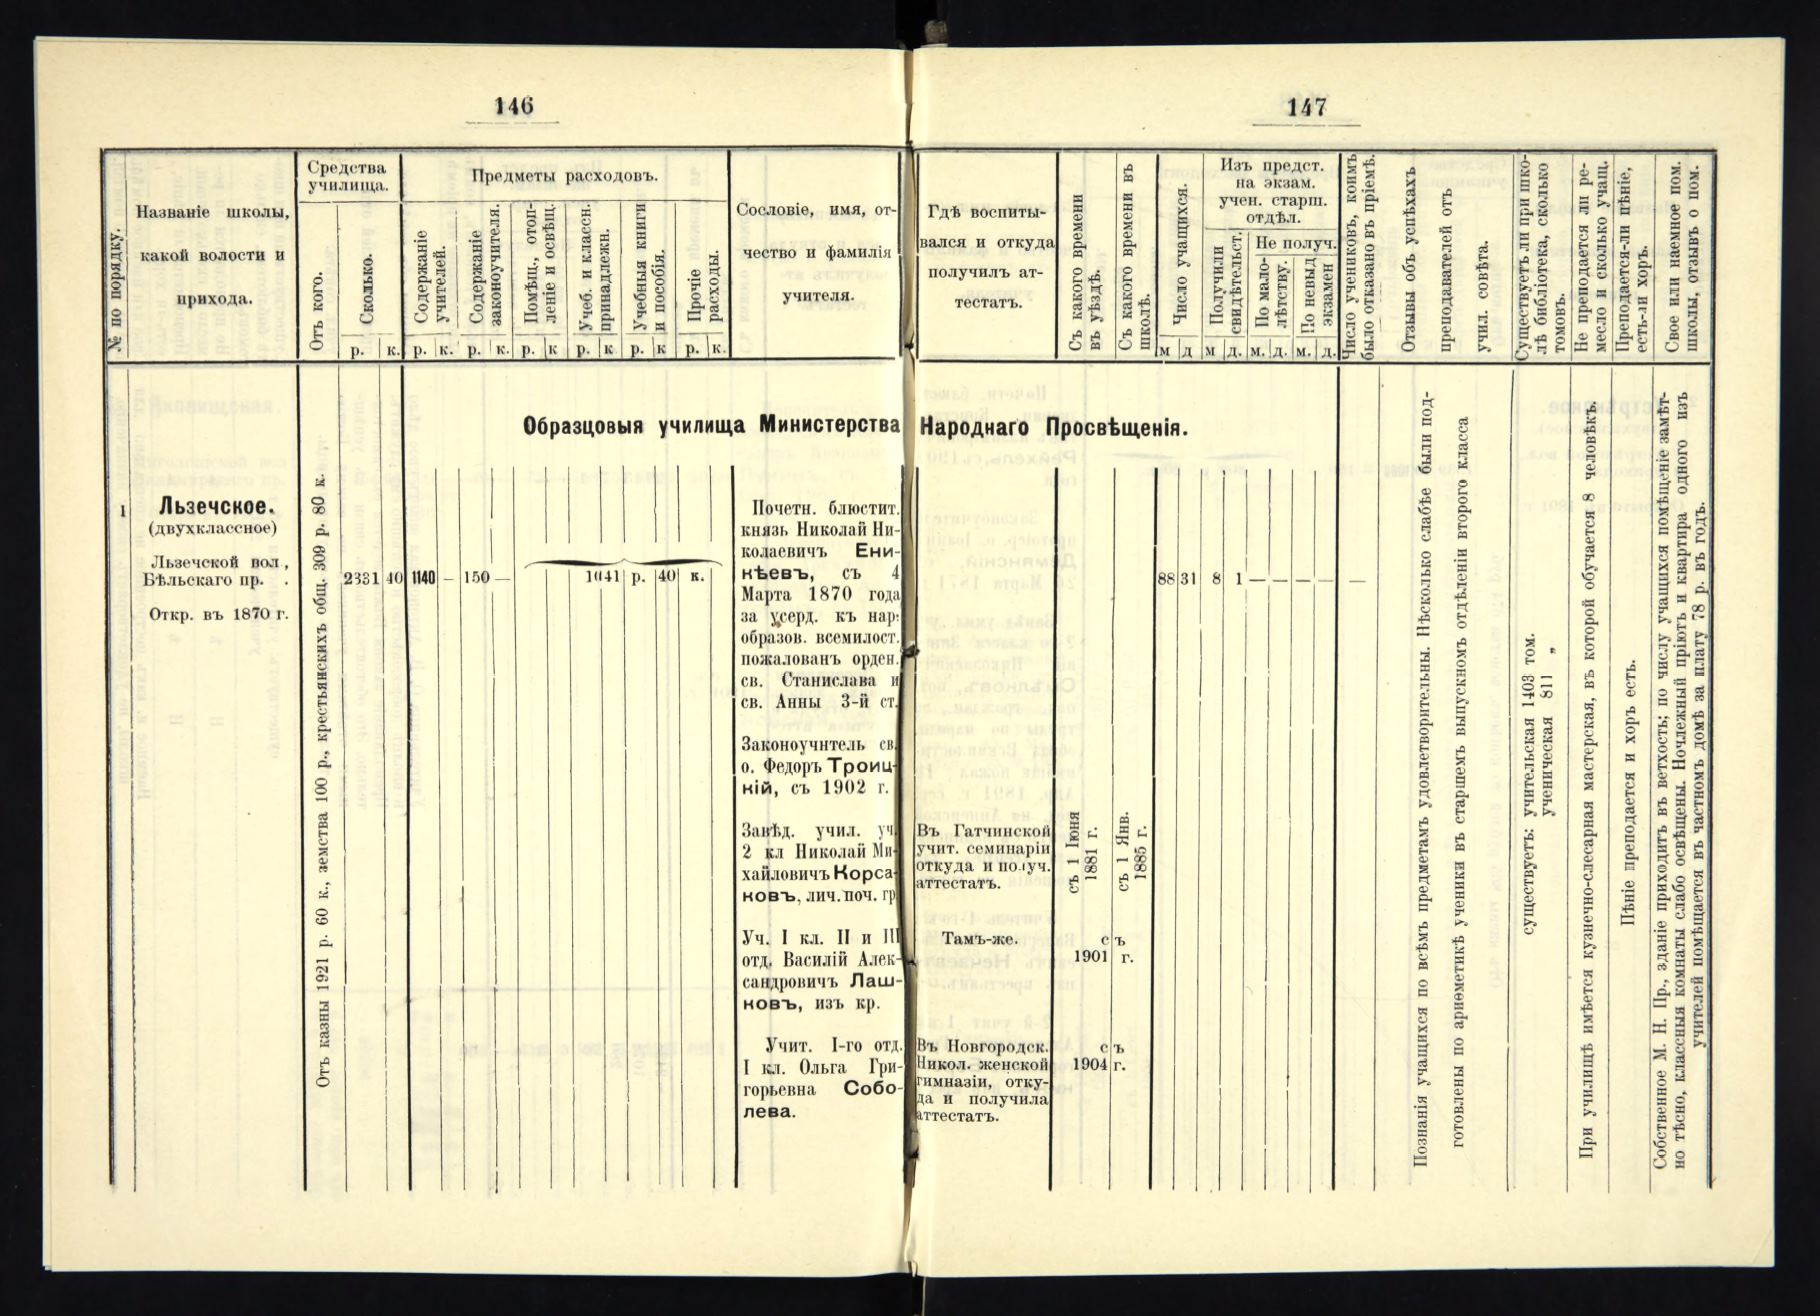 146
№ по порядку.
Названіе школы,
какой волости и
прихода.
Средства
училища.
Отъ кого.
Сколько.
р. к.
Предметы расходовъ.
Содержаніе
учителей.
Содержаніе
законоучителя.
Помѣщ., отоп-
леніе и освѣщ.
Учеб. и классн.
принадлежн.
Учебныя книги
и пособія.
Прочіе
расходы.
р. к. р. к. р. к р. к р. к р. к.
Сословіе, имя, от-
чество и фамилія
учителя.
Образцовыя училища Министерства
1
Льзечское.
(двухклассное)
Льзечской вол.,
Бѣльскаго пр.
Откр. въ 1870 г.
Отъ казны 1921 р. 60 к., земства 100 р., крестьянскихъ общ. 309 р. 80 к.
2331 40 1140 — 150 — 1041 р. 40 к.
Почетн. блюстит.
князь Николай Ни-
колаевичъ Ени-
кѣевъ, съ 4
Марта 1870 года
за усерд. къ нар.
образов. всемилост.
пожалованъ орден.
св. Станислава и
св. Анны 3-й ст.
Законоучнтель св.
о. Федоръ Троиц-
кій, съ 1902 г.
Завѣд. учил. уч.
2 кл Николай Ми-
хайловичъ Корса-
ковъ, лич. поч. гр.
Уч. I кл. II и III
отд. Василій Алек-
сандровичъ Лаш-
ковъ, изъ кр.
Учит. I-го отд.
I кл. Ольга Гри-
горьевна Собо-
лева.
147
Гдѣ воспиты-
вался и откуда
получилъ ат-
тестатъ.
Съ какого времени
въ уѣздѣ.
Съ какого времени въ
школѣ.
Число учащихся.
м д
Изъ предст.
на экзам.
учен. старш.
отдѣл.
Получили
свидѣтельст.
Не получ.
По мало-
лѣтству.
По невыд
экзамен
м д. м. д. м. д.
Число учениковъ, коимъ
было отказано въ пріемѣ.
Отзывы объ успѣхахъ
преподавателей отъ
учил. совѣта.
Существуетъ ли при шко-
лѣ библіотека, сколько
томовъ.
Не преподается ли ре-
месло и сколько учащ.
Преподается-ли пѣніе,
есть-ли хоръ.
Свое или наемное пом.
школы, отзывъ о пом.
Народнаго Просвѣщенія.
88 31 8 1 — — — — —
Въ Гатчинской
учит. семинаріи
откуда и получ.
аттестатъ.
съ 1 Іюня
1881 г.
съ 1 Янв.
1885 г.
Тамъ-же.
съ
1901 г.
Въ Новгородск.
Никол. женской
гимназіи, отку-
да и получила
аттестатъ.
съ
1904 г.
Познанія учащихся по всѣмъ предметамъ удовлетворительны. Нѣсколько слабѣе были под-
готовлены по ариѳметикѣ ученики въ старшемъ выпускномъ отдѣленіи второго класса
существуетъ: учительская 1403 том.
ученическая 811 „
При училищѣ имѣется кузнечно-слесарная мастерская, въ которой обучается 8 человѣкъ.
Пѣніе преподается и хоръ есть.
Собственное М. Н. Пр., зданіе приходитъ въ ветхость; по числу учащихся помѣщеніе замѣт-
но тѣсно, классныя комнаты слабо освѣщены. Ночлежный пріютъ и квартира одного изъ
учителей помѣщается въ частномъ домѣ за плату 78 р. въ годъ.